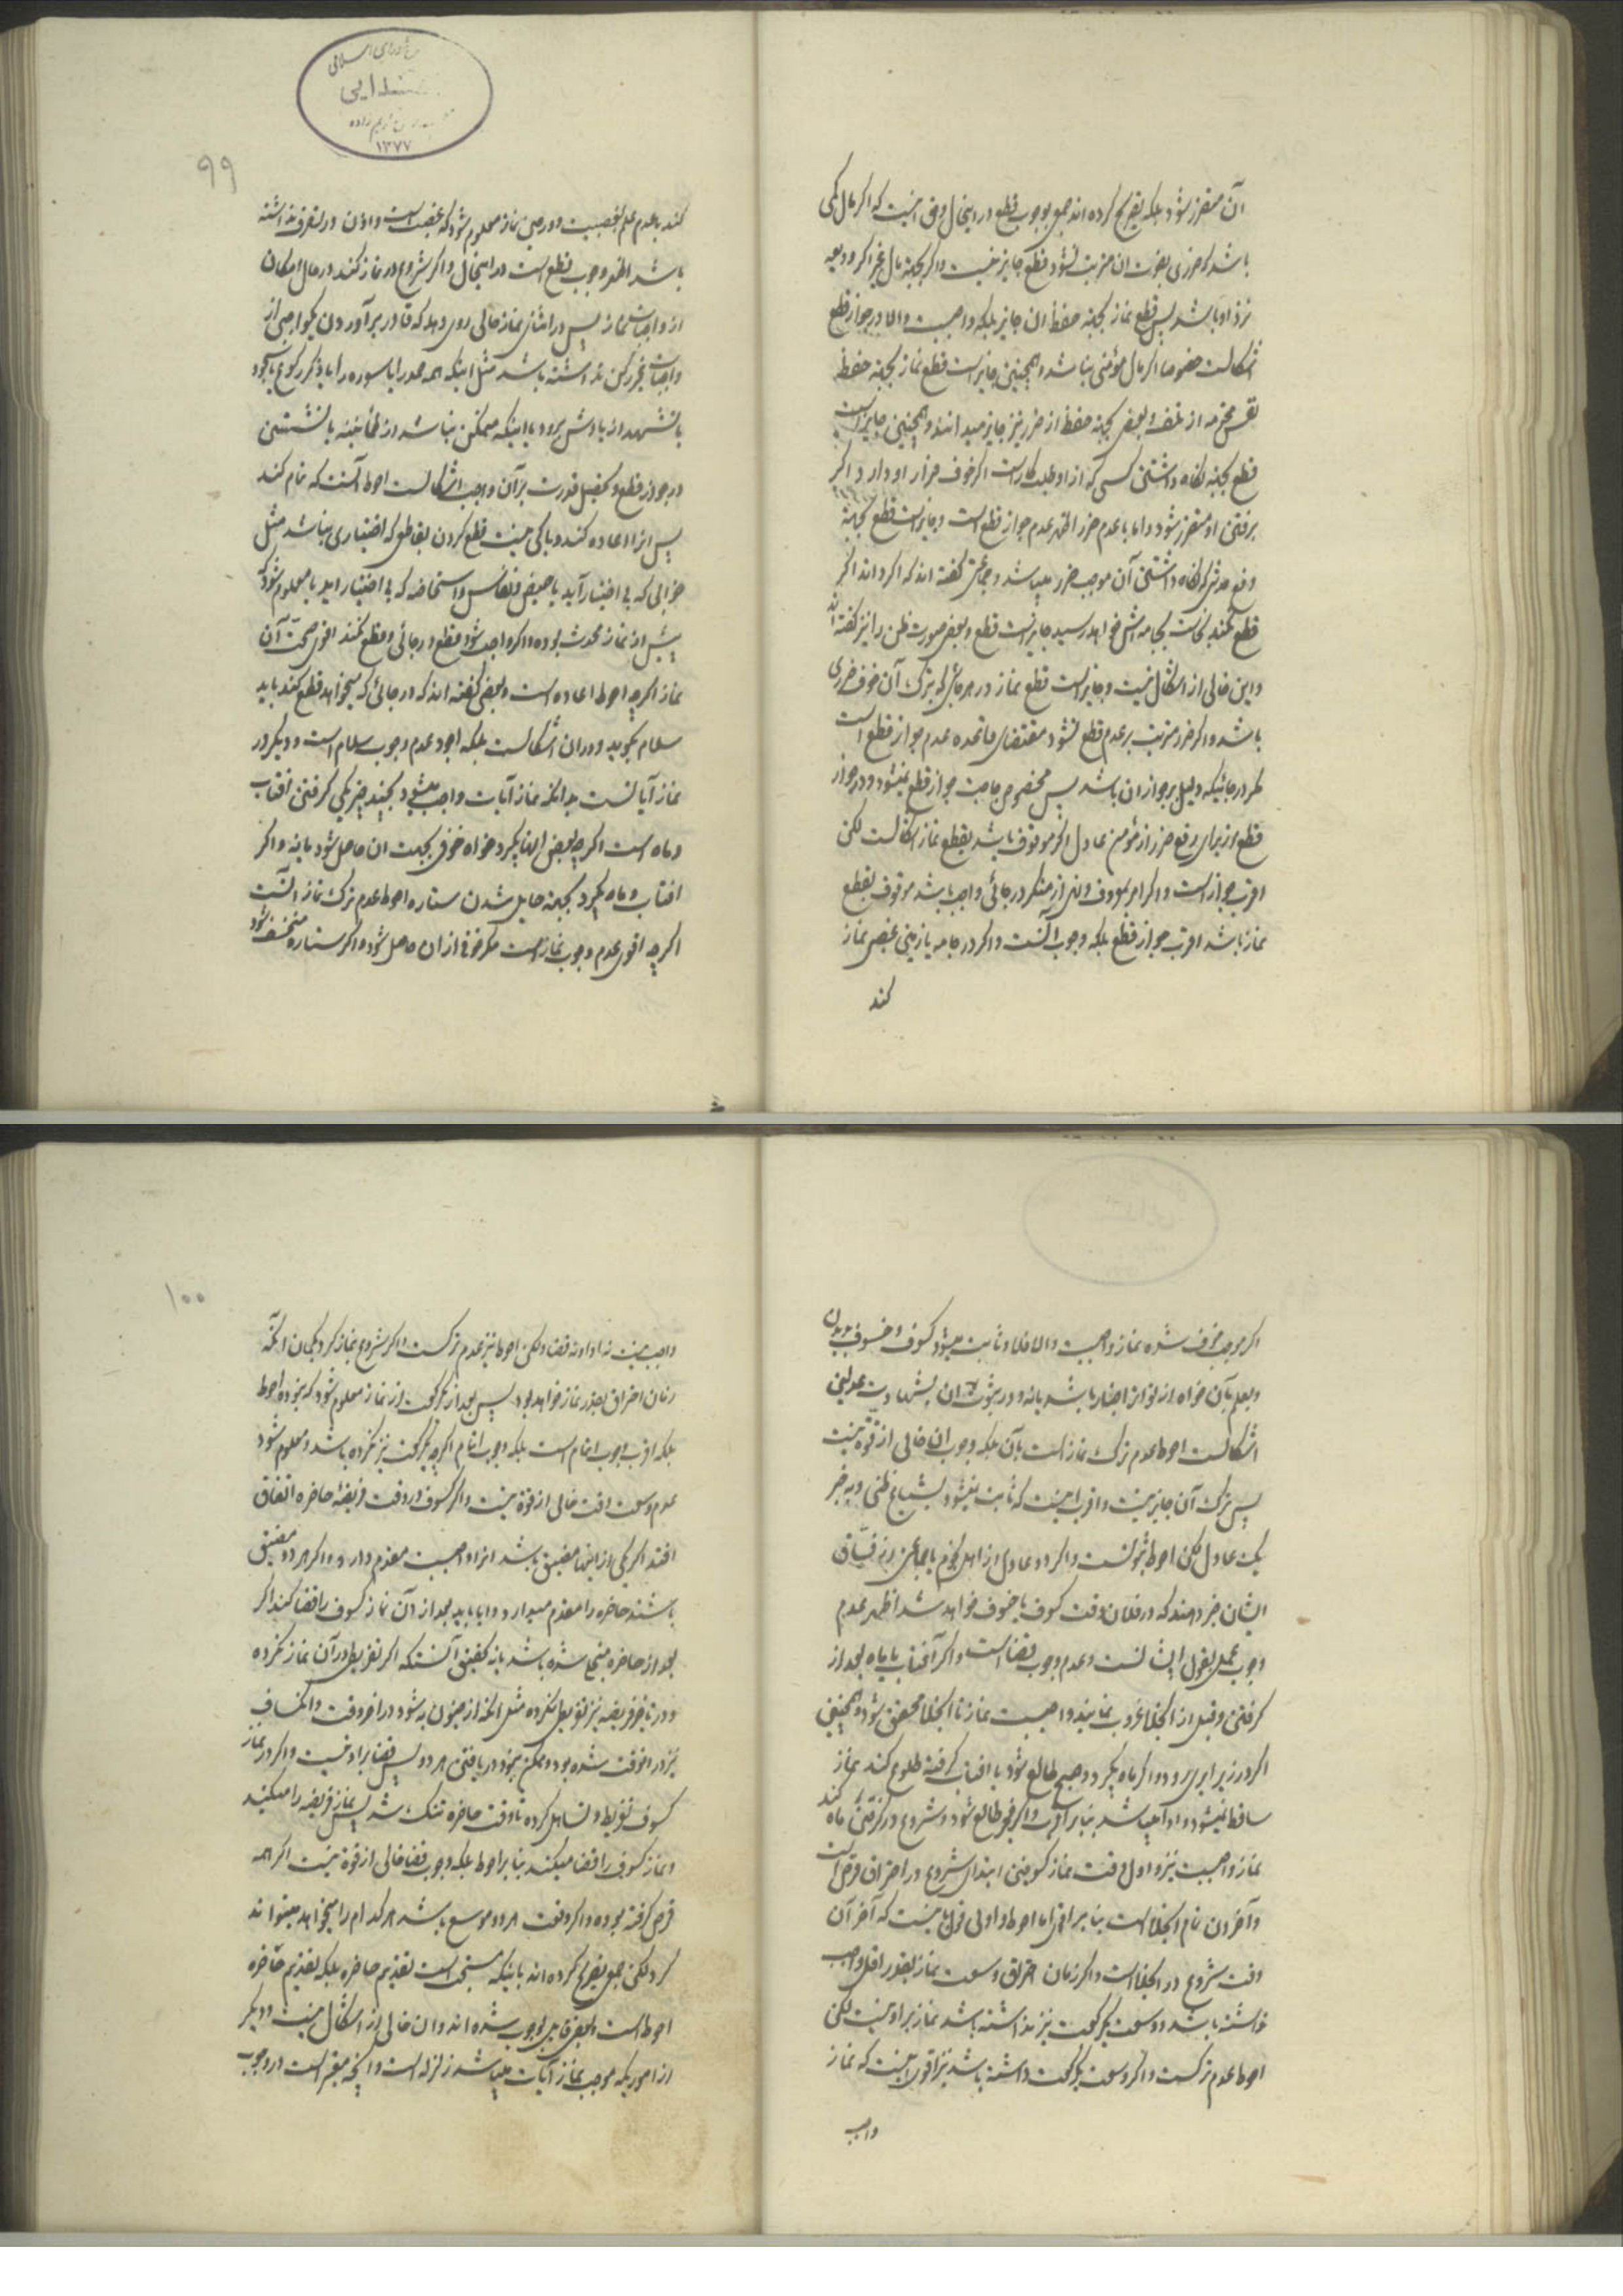 آن متضرر شود بلکه تصریح کرده‌اند جمعی بوجوب قطع در اینحال و حق اینست که اگر مال کمی
باشد که ضرری بفوت آن مترتب نشود قطع جایز نیست و اگر بجهة مال غیر اگر ودیعه
نزد او باشد پس قطع نماز بجهة حفظ آن جایز بلکه واجبست والا در جواز قطع
اشکالست خصوصا اگر مال مؤمنی نباشد و همچنین جایز است قطع نماز بجهة حفظ
نفس محترمه از تلف و بعضی بجهة حفظ از ضرر نیز جایز میدانند و همچنین جایز است
قطع بجهة نگاه داشتن کسی که از او طلبکار است اگر خوف فرار او دارد و اگر
برفتن او متضرر شود و اما با عدم ضرر اظهر عدم جواز قطع است و جایز است قطع بجهة
دفع حدثی که نگاه داشتن آن موجب ضرر میباشد و جماعتی گفته‌اند که اگر داند اگر
قطع نکند نجاست بجامه‌اش خواهد رسید جایز است قطع و بعضی صورت ظن را نیز گفته‌اند
و این خالی از اشکال نیست و جایز است قطع نماز در هر جائی که بترک آن خوف ضرری
باشد و اگر ضرر مترتب بر عدم قطع نشود مقتضای قاعده عدم جواز قطع است
مگر در جائیکه دلیل بر جواز آن باشد پس محض حاجت جواز قطع نمیشود و در جواز
قطع از برای رفع ضرر از مؤمن عادل اگر موقوف باشد بقطع نماز اشکالست لکن
اقرب جواز است و اگر امر بمعروف و نهی از منکر در جائی واجب باشد موقوف بقطع
نماز باشد اقرب جواز قطع بلکه وجوب آنست و اگر در جامه یا زمین غصبی نماز
کند
۹۹
۱۳۷۷
کند با عدم علم بغصبیت و در حین نماز معلوم شود که غصب است و اذن در تصرف نداشته
باشد اظهر وجوب قطع است در اینحال و اگر شروع در نماز کند در حال امکان
از واجبات نماز پس در اثنای نماز حالی روی دهد که قادر بر آوردن یکواجبی از
واجبات غیر رکن نداشته باشد مثل اینکه همه حمد را یا سوره را یا ذکر رکوع یا سجود
یا تشهد از یادش برود یا اینکه متمکن نباشد از طمأنینه یا نشستن
در جواز قطع و تحصیل قدرت بر آن واجب اشکالست احوط آنست که تمام کند
پس از آن اعاده کند و باکی نیست قطع کردن بقاطعی که اختیاری نباشد مثل
خوابی که بی اختیار آید یا حیض و نفاس و استحاضه که بی اختیار آید یا معلوم شود که
پیش از نماز محدث بوده و اگر واجب شود قطع در جائی و قطع نکند اقوی صحت آن
نماز اگرچه احوط اعاده است و بعضی گفته‌اند که در جائی که میخواهد قطع کند باید
سلام بگوید و در آن اشکالست بلکه اجود عدم وجوب سلام است و دیگر در
نماز آیاتست بدانکه نماز آیات واجب میشود بچند چیز یکی گرفتن آفتاب
و ماه است اگرچه بعض آنها بگیرد خواه خوفی بجهت آن حاصل شود یا نه و اگر
افتاب و ماه بگیرد بجهة حایل شدن ستاره احوط عدم ترک نماز آنست
اگرچه اقوی عدم وجوب نماز است مگر خوفی از آن حاصل شود و اگر ستاره منخسف شود
اگر موجب خوف شده نماز واجبست والا فلا و ثابت میشود کسوف و خسوف بدیدن
و بعلم بآن خواه از تواتر اخبار باشد یا نه و در ثبوت آن بشهادت عدلین
اشکالست احوط عدم ترک نماز است بآن بلکه وجوب آن خالی از قوه نیست
پس ترک آن جایز نیست و اقرب اینست که ثابت نمیشود بشیاع ظنی و بخبر
یک عادل لکن احوط ثبوتست و اگر دو عادل از اهل نجوم یا جماعتی از فساق
ایشان خبر دهند که در فلان وقت کسوف یا خسوف خواهد شد اظهر عدم
وجوب عمل بقول ایشانست و عدم وجوب قضا است و اگر آفتاب یا ماه بعد از
گرفتن و قبل از انجلاء غروب نمایند واجبست نماز تا انجلا محقق شود و همچنین
اگر در زیر ابر رود و اگر ماه بگیرد و صبح طالع شود یا افتاب گرفته طلوع کند نماز
ساقط نمیشود و ادا میباشد بنابر اقرب و اگر فجر طالع شود و شروع در گرفتن ماه کند
نماز واجبست نیز و اول وقت نماز کسوفین ابتدای شروع در احتراق قرص است
و آخر آن تمام انجلا است بنابر اقوی اما احوط و اولی قول باینست که آخر آن
وقت شروع در انجلا است و اگر زمان احتراق وسعت نماز بقدر اقل واجب
نداشته باشد و وسعت یک رکعت نیز نداشته باشد نماز بر او نیست لکن
احوط عدم ترکست و اگر وسعت یک رکعت داشته باشد نیز اقوی اینست که نماز
واجب
۱۰۰
واجب نیست نه ادا و نه قضا و لکن احوط نیز عدم ترکست و اگر شروع بنماز کرد بگمان آنکه
زمان احتراق بقدر نماز خواهد بود پس بعد از یک رکعت از نماز معلوم شود که نبوده احوط
بلکه اقرب وجوب اتمام است بلکه وجوب اتمام اگرچه یک رکعت نیز نکرده باشد و معلوم شود
عدم وسعت وقت خالی از قوة نیست و اگر کسوف در وقت فریضه حاضره اتفاق
افتد اگر یکی از اینها مضیق باشد انرا واجبست مقدم دارد و اگر هر دو مضیق
باشند حاضره را مقدم میدارد و آیا باید بعد از آن نماز کسوف را قضا کند اگر
بعد از حاضره منجلی شده باشد یا نه تحقیق آنستکه اگر تفریط در آن نماز نکرده
و در تاخیر فریضه نیز تفریط نکرده مثل آنکه از جنون به شود در آخر وقت و انکساف
نیز در آنوقت شده بود و ممکن نبود دریافتن هر دو پس قضا بر او نیست و اگر در نماز
کسوف تفریط و تساهل کرده تا وقت حاضره تنگ شد پس نماز فریضه را میکند
و نماز کسوف را قضا میکند بنابر احوط بلکه وجوب قضا خالی از قوة نیست اگر همه
قرص گرفته بوده و اگر وقت هر دو موسع باشد هر کدام را میخواهد میتواند
کرد لکن جمعی تصریح کرده‌اند باینکه مستحب است تقدیم حاضره بلکه تقدیم حاضره
احوط است و بعضی قایل بوجوب شده‌اند و آن خالی از اشکال نیست و دیگر
از اموریکه موجب نماز آیات میباشد زلزله است و آنچه معتبر است در وجوب